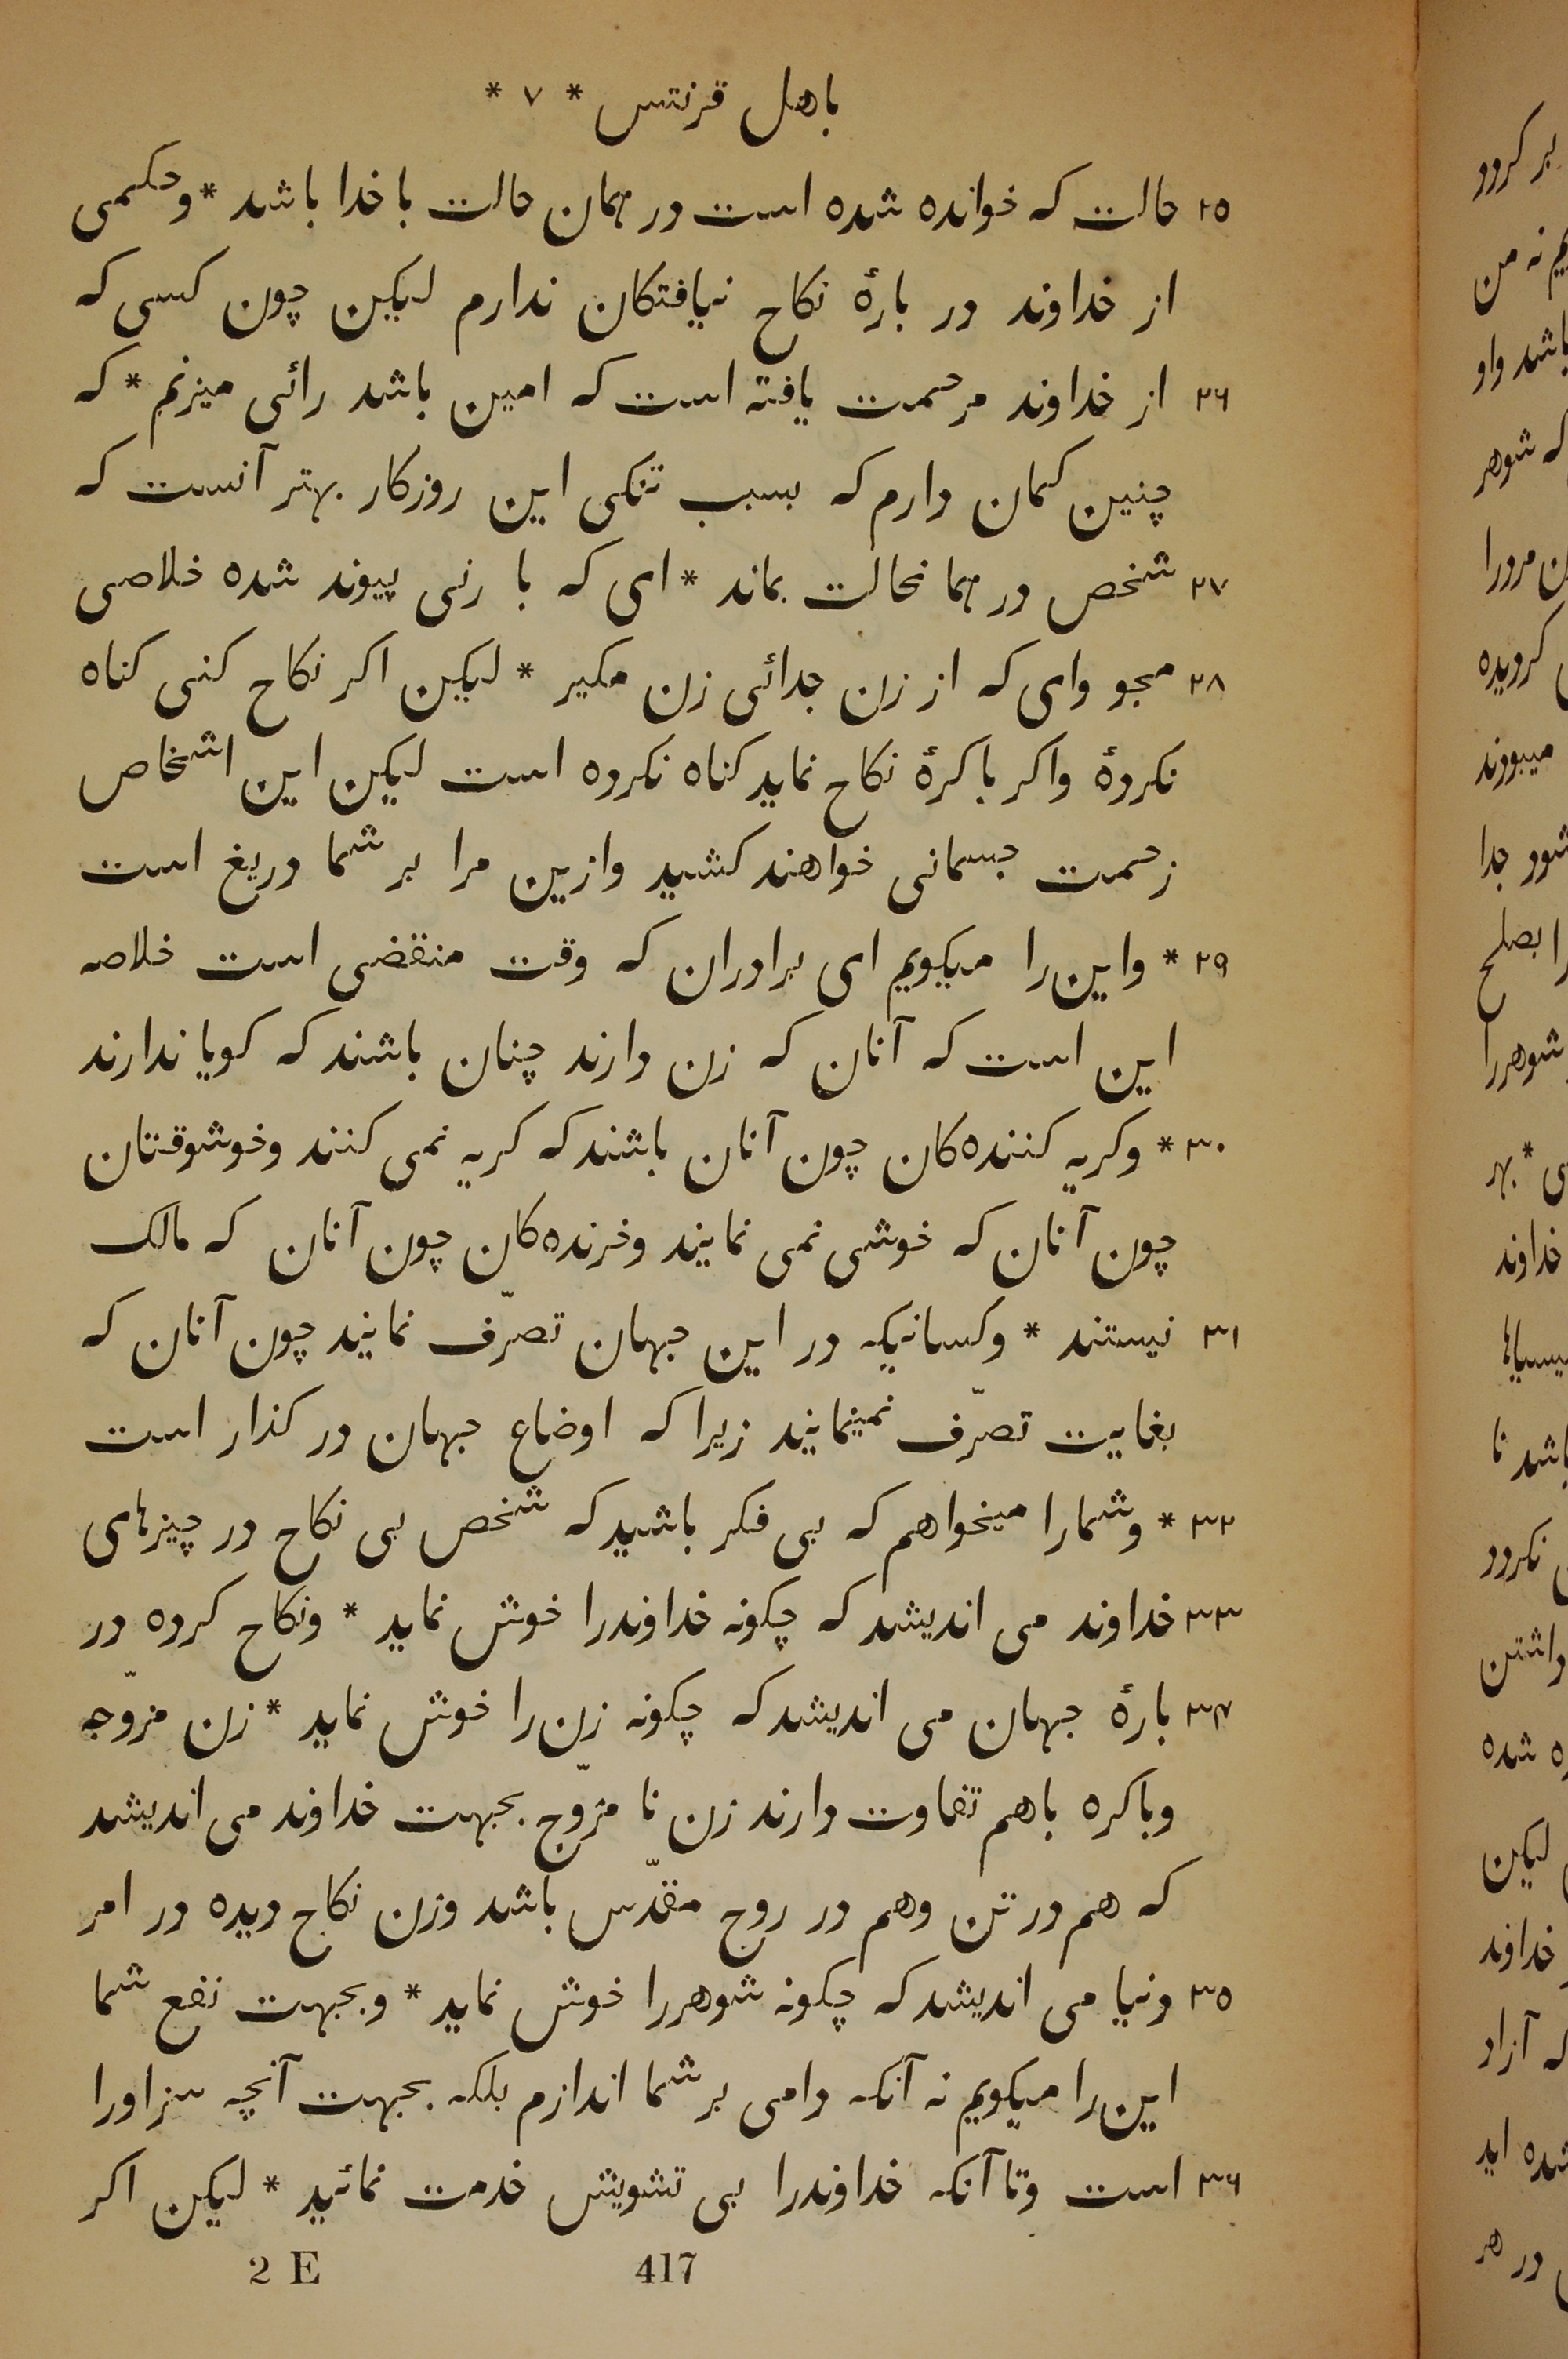 باهل قرنتس * ۷ *
۲۵ حالت که خوانده شده است در همان حالت با خدا باشد * وحکمی
از خداوند در بارهٔ نکاح نیافتکان ندارم لیکن چون کسی که
۲۶ از خداوند مرحمت یافته است که امین باشد رائی میزنم * که
چنین کمان دارم که بسبب تنکی این روزکار بهتر آنست که
۲۷ شخص در همانحالت بماند * ای که با زنی پیوند شده خلاصی
۲۸ مجو وای که از زن جدائی زن مکیر * لیکن اکر نکاح کنی کناه
نکردهٔ واکر باکرهٔ نکاح نماید کناه نکرده است لیکن این اشخاص
زحمت جسمانی خواهند کشید وازین مرا بر شما دریغ است
۲۹ * واین را میکویم ای برادران که وقت منقضی است خلاصه
این است که آنان که زن دارند چنان باشند که کویا ندارند
۳۰ * وکریه کننده‌کان چون آنان باشند که کریه نمی کنند وخوشوقتان
چون آنان که خوشی نمی نمایند وخرنده‌کان چون آنان که مالک
۳۱ نیستند * وکسانیکه در این جهان تصرّف نمایند چون آنان که
بغایت تصرّف نمینمایند زیرا که اوضاع جهان در کذار است
۳۲ * وشمارا میخواهم که بی فکر باشید که شخص بی نکاح در چیزهای
۳۳ خداوند می اندیشد که چکونه خداوندرا خوش نماید * ونکاح کرده در
۳۴ بارهٔ جهان می اندیشد که چکونه زن را خوش نماید * زن مزوّجه
وباکره باهم تفاوت دارند زن نا مزوّج بجهت خداوند می اندیشد
که هم در تن وهم در روح مقدّس باشد وزن نکاح دیده در امر
۳۵ دنیا می اندیشد که چکونه شوهررا خوش نماید * وبجهت نفع شما
این را میکویم نه آنکه دامی بر شما اندازم بلکه بجهت آنچه سزاورا
۳۶ است وتا آنکه خداوندرا بی تشویش خدمت نمائید * لیکن اکر
2 E 417